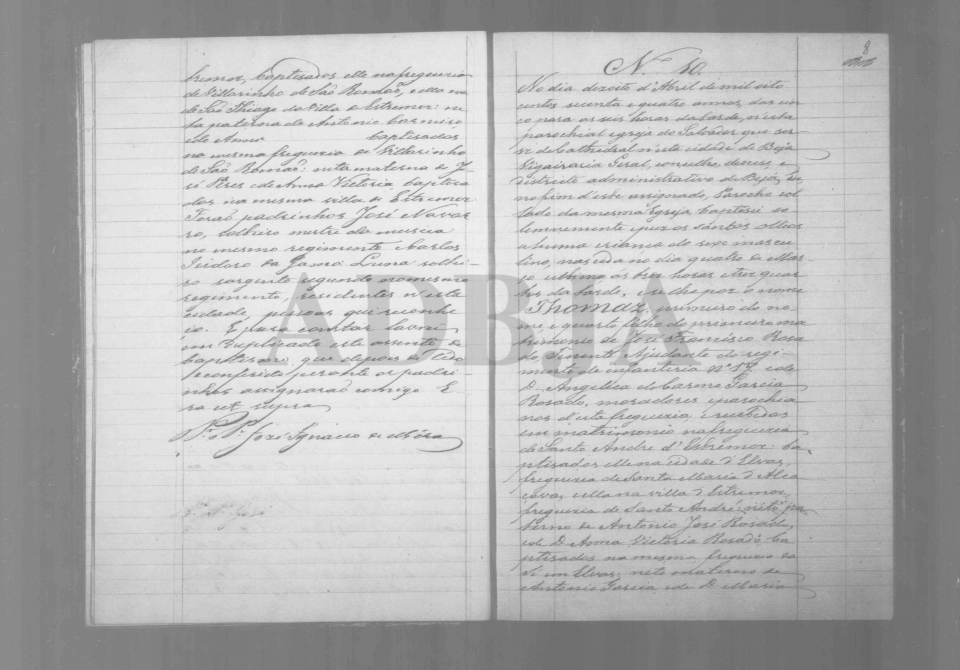 tremoz, baptisados elle na freguezia
de Villarinho de São Romão, e ella na
de São Thiago da Villa de Estremoz: ne
ta paterna de Antonio Casmiro
e de Anna baptisados
na mesma freguezia de Villarinho
de São Romão: neta materna de J
sé Pires e de Anna Victoria baptisa
dos na mesma villa de Estremoz
Forão padrinhos José Navar
ro, solteiro mestre da musica
no mesmo regimento e Carlos
Izidoro da Gama Luna soltei
ro sargento segundo no mesmo
regimento, residentes n'esta
cidade, pessoas que reconhe
ço. E para constar lavrei
em duplicado este assento de
baptismo, que depois de lido
e conferido perante os padri
nhos assignarão comigo E
ra ut supra
José Ignacio de Mira
8
N.º 50.
No dia dezoito d'Abril de mil oito
centos secenta e quatro annos, das cin
co para as seis horas da tarde, n'esta
parochial igreja do Salvador que ser
ve de Cathedral n'esta cidade de Beja
Vigairaria Geral, concelho, diocese e
districto administrativo de Beja, eu
no fim d'este assignado, Parocho col
lado da mesma Igreja, baptisei so
lemnemente e puz os santos oleos
a huma criança do sexo mascu
lino, nascida no dia quatro de Mar
ço ultimo ás tres horas e tres quar
tos da tarde, e se lhe poz o nome
Thomaz, primeiro do no
me e quarto filho do primeiro ma
trimonio de José Francisco Rosa
do, Tenente, Ajudante do regi
mento de infanteria Nº 17, e de
D. Angelica do Carmo Garcia
Rosado, moradores e parochia
nos d'esta freguezia e recebidos
em matrimonio na freguezia
de Santo André d'Estremoz: ba
ptisados elle na cidade d'Elvas,
freguezia de Santa Maria d'Alca
çova, e ella na villa d'Estremoz,
freguezia de Santo André: neto pa
terno de Antonio José Rosado,
e de D. Anna Victoria Rosado ba
ptisados na mesma freguezia da
Sé em Elvas: neto materno de
Antonio Garcia e de D. Maria
ADBJA